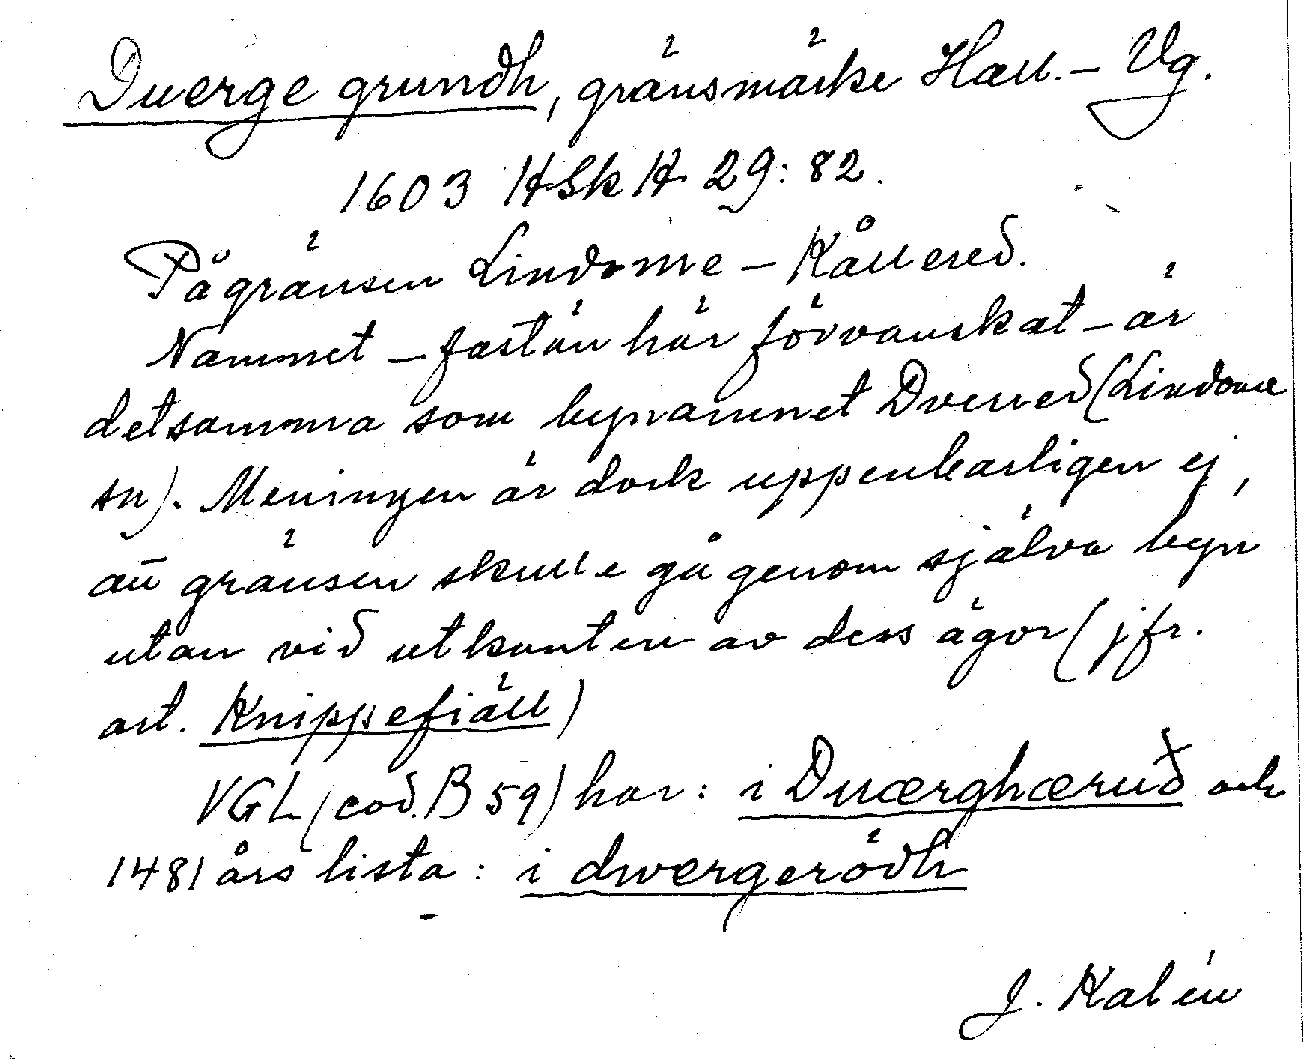 Duerge grundh, gränsmärke Hall. – Vg.
1603 HSkH 29:82.
På gränsen Lindome – Kållered.
Namnet – fastän här förvanskat – är
detsamma som bynamnet Dvered (Lindome
sn). Meningen är dock uppenbarligen ej,
att gränsen skulle gå genom själva byn
utan vid utkanten av dess ägor (jfr.
art. Knippefiäll)
VGL (cod. B 59) har: i Duærghæruð och
1481 års lista: i dwergerödh
J. Kalén